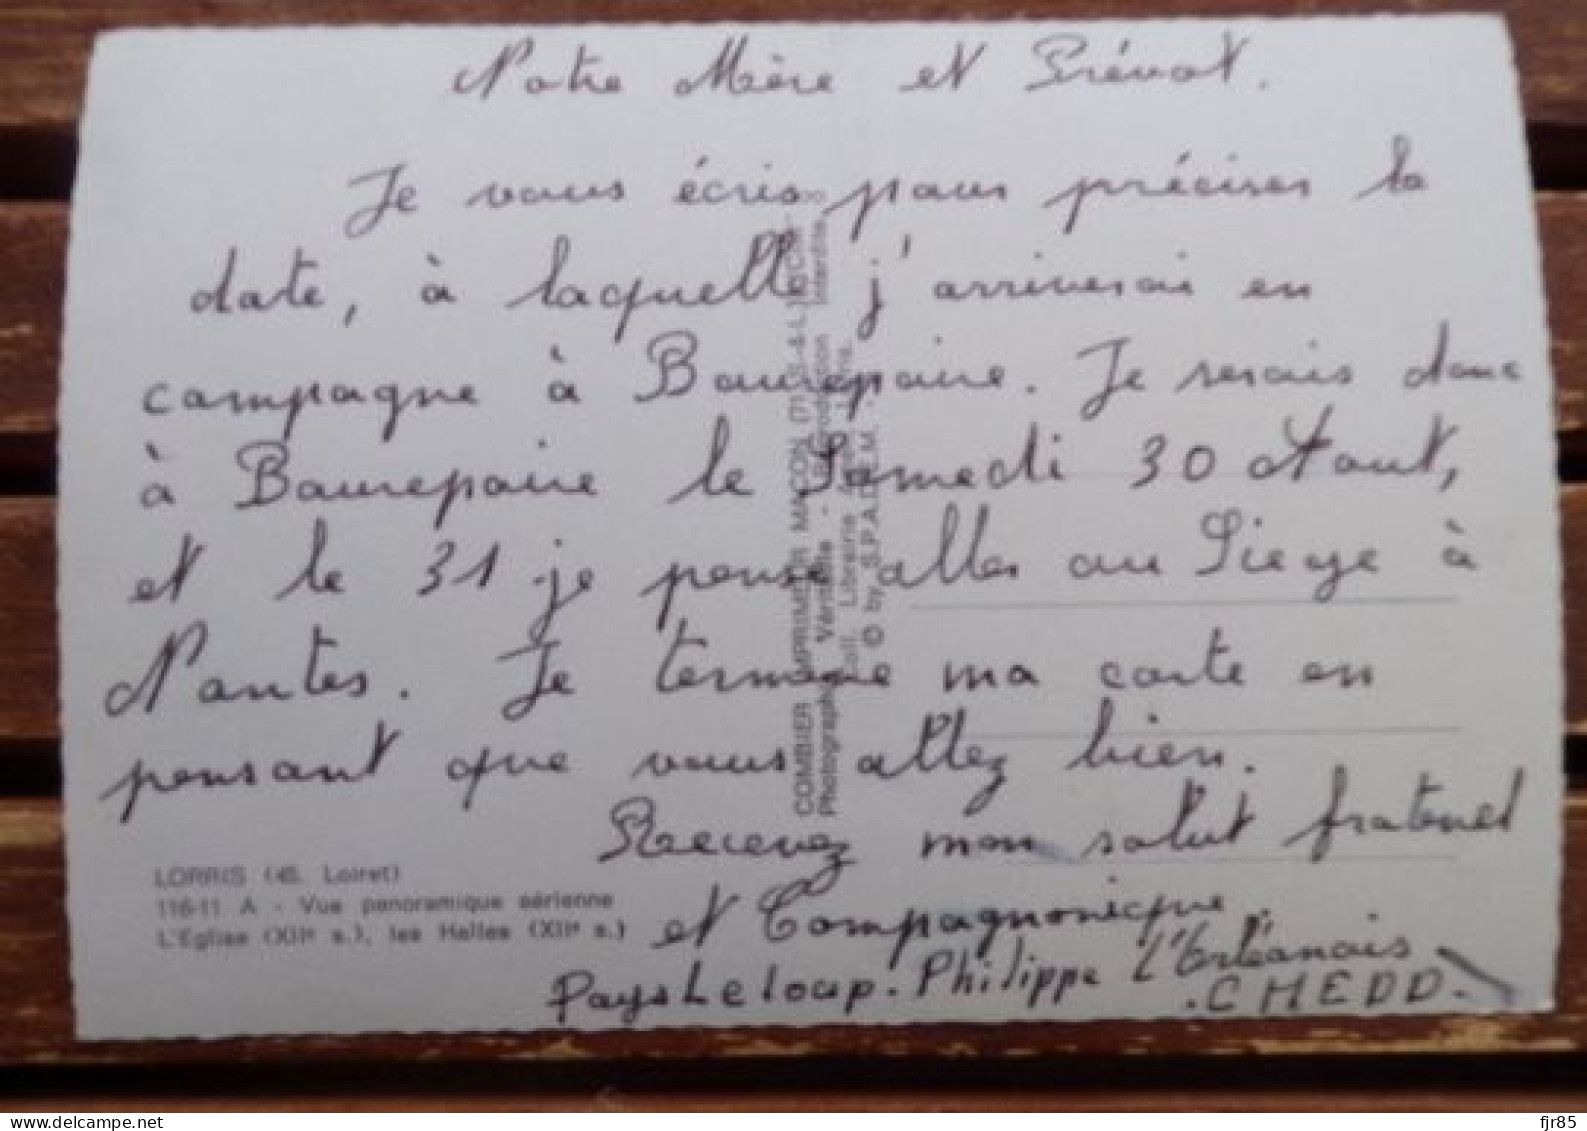 Notre Mère et Prévot.
Je vous écris pour préciser la
date, à laquelle j'arriverai en
campagne à Baurepaire. Je serais donc
à Baurepaire le Samedi 30 Aout,
et le 31 je pense aller au Siege à
Nantes. Je termine ma carte en
pensant que vous allez bien.
Recevez mon salut fraternel
et Compagnonique.
Pays Leloup. Philippe L'Orléanais
.C.H.E.D.D.
LORRIS (45. Loiret)
116-11 A - Vue panoramique aérienne
L'Eglise (XIIe s.), les Halles (XIIe s.)
COMBIER IMPRIMEUR MACON (71 S.-&-L.)
Photographie Véritable - Reproduction Interdite.
Coll. Librairie
© by S.P.A.D.E.M. -
fjr85